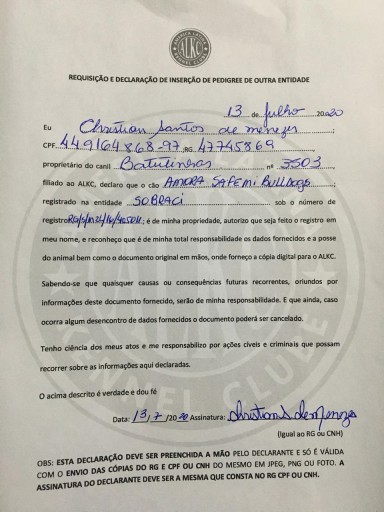 ALKC
KENNEL CLUBE
REQUISIÇÃO E DECLARAÇÃO DE INSERÇÃO DE PEDIGREE DE OUTRA ENTIDADE
13 de Julho 2020
Eu Christian Santos de menezes;
CPF 449164868-97;RG 47745869
proprietário do canil Batutinhas nº 3503
filiado ao ALKC, declaro que o cão AMORA SAFEMI BULLDOGS
registrado na entidade SOBRACI sob o número de
registro; é de minha propriedade, autorizo que seja feito o registro em
meu nome, e reconheço que é de minha total responsabilidade os dados fornecidos e a posse
do animal bem como o documento original em mãos, onde forneço a cópia digital para o ALKC.
Sabendo-se que quaisquer causas ou consequências futuras recorrentes, oriundos por
informações deste documento fornecido, serão de minha responsabilidade. E que ainda, caso
ocorra algum desencontro de dados fornecidos o documento poderá ser cancelado.
Tenho ciência dos meus atos e me responsabilizo por ações cíveis e criminais que possam
recorrer sobre as informações aqui declaradas.
O acima descrito é verdade e dou fé
Data: 13/7/2020 Assinatura: Christian S de Menezes
(Igual ao RG ou CNH)
OBS: ESTA DECLARAÇÃO DEVE SER PREENCHIDA A MÃO PELO DECLARANTE E SÓ É VÁLIDA
COM O ENVIO DAS CÓPIAS DO RG E CPF OU CNH DO MESMO EM JPEG, PNG OU FOTO. A
ASSINATURA DO DECLARANTE DEVE SER A MESMA QUE CONSTA NO RG CPF OU CNH.